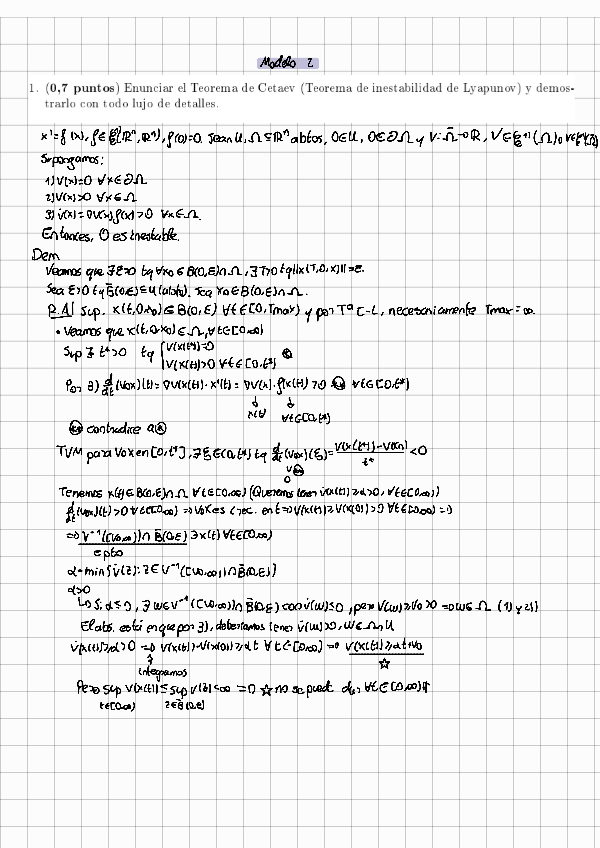 Modelo 2
1. (0,7 puntos) Enunciar el Teorema de Cetaev (Teorema de inestabilidad de Lyapunov) y demos-
trarlo con todo lujo de detalles.
x'=f(x), f∈ℰ¹(ℝⁿ,ℝⁿ), f(0)=0. Sean U, Ω⊆ℝⁿ abtos, 0∈U, 0∈∂Ω y V: Ω̄→ℝ, V∈ℰ¹(Ω)
Supongamos:
1) V(x)=0 ∀x∈∂Ω
2) V(x)>0 ∀x∈Ω
3) V̇(x)=∇V(x)·f(x)>0 ∀x∈Ω.
Entonces, 0 es inestable.
Dem
Veamos que ∃ε>0 tq ∀x₀∈B(0,ε)∩Ω, ∃T>0 tq ||x(T,0,x)||=ε.
Sea ε>0 tq B̄(0,ε)⊆U (abto). Sea x₀∈B(0,ε)∩Ω.
R.A| Sup. x(t,0,x₀)⊆B(0,ε) ∀t∈[0,Tmax) y por Tª C-L, necesariamente Tmax=∞.
• Veamos que x(t,0,x₀)∈Ω, ∀t∈[0,∞)
Sup ∃ t*>0 tq {V(x(t*))=0
V(x(t))>0 ∀t∈[0,t*)
Por 3) d/dt (V∘x)(t)=∇V(x(t))·x'(t)=∇V(x)·f(x(t))>0 ∀t∈[0,t*)
∀t∈[0,t*)
contradice a
TVM para V∘x en [0,t*], ∃ξ∈(0,t*) tq d/dt (V∘x)(ξ)=V(x(t*))-V(x₀)/t* <0
0
Tenemos x(t)∈B(0,ε)∩Ω ∀t∈[0,∞) (Queremos tener V̇(x(t))≥α>0, ∀t∈[0,∞))
d/dt (V∘x)(t)>0 ∀t∈[0,∞) ⇒ V∘x es crec. en t ⇒ V(x(t))≥V(x(0))>0 ∀t∈[0,∞) ⇒
⇒ V⁻¹([V₀,∞))∩B̄(0,ε)∋x(t) ∀t∈[0,∞)
cpto
α=min{V̇(z): z∈V⁻¹([V₀,∞))∩B̄(0,ε)}
α>0
↳ Si α≤0, ∃w∈V⁻¹([V₀,∞))∩B̄(0,ε) con V̇(w)≤0, pero V(w)≥V₀>0 ⇒ w∈Ω (1) y 2))
El abs. está en que por 3), deberíamos tener V̇(w)>0, w∈Ω∩U
V̇(x(t))≥α>0 ⇒ V(x(t))-V(x(0))≥αt ∀t∈[0,∞) ⇒ V(x(t))≥αt+V₀
integramos ☆
Pero sup V(x(t))≤sup V(z)<∞ ⇒ ☆ no se puede dar ∀t∈[0,∞)
t∈[0,∞) z∈B̄(0,ε)